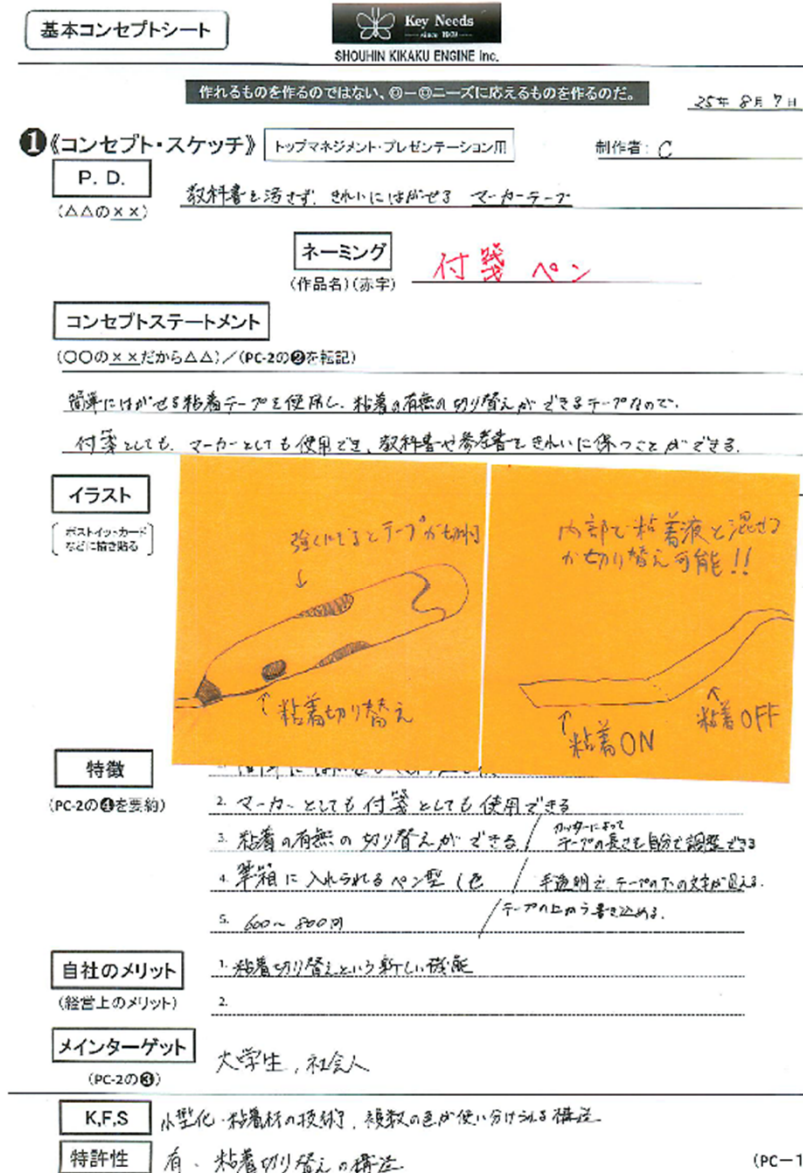 基本コンセプトシート
Key Needs
since 1969
SHOUHIN KIKAKU ENGINE Inc.
作れるものを作るのではない、◎−◎ニーズに応えるものを作るのだ。
25年 8月 7日
❶《コンセプト・スケッチ》 トップマネジメント・プレゼンテーション用 制作者: C
P. D.
(△△の××)
教科書を汚さず、きれいにはがせる マーカーテープ
ネーミング
(作品名)(赤字)
付箋 ペン
コンセプトステートメント
(○○の××だから△△)/(PC-2の❷を転記)
簡単にはがせる粘着テープを使用し、粘着の有無の切り替えができるテープなので、
付箋としても、マーカーとしても使用でき、教科書や参考書をきれいに保つことができる。
イラスト
ポストイット・カード
などに描き貼る
強くにぎるとテープがも切れ
粘着切り替え
内部で粘着液と混ぜる
か切り替え可能!!
粘着ON
粘着OFF
特徴
(PC-2の❹を要約)
1.
2. マーカーとしても付箋としても使用できる
3. 粘着の有無の切り替えができる / カッターによって
テープの長さを自分で調整できる
4. 筆箱に入れられるペン型 (色 / 半透明で、テープの下の文字が見える。
5. 600〜800円 / テープの上から書き込める。
自社のメリット
(経営上のメリット)
1. 粘着切り替えという新しい機能
2.
メインターゲット
(PC-2の❸)
大学生、社会人
K,F,S 小型化・粘着材の技術、複数の色が使い分けられる構造
特許性 有、粘着切り替えの構造
(PC−1